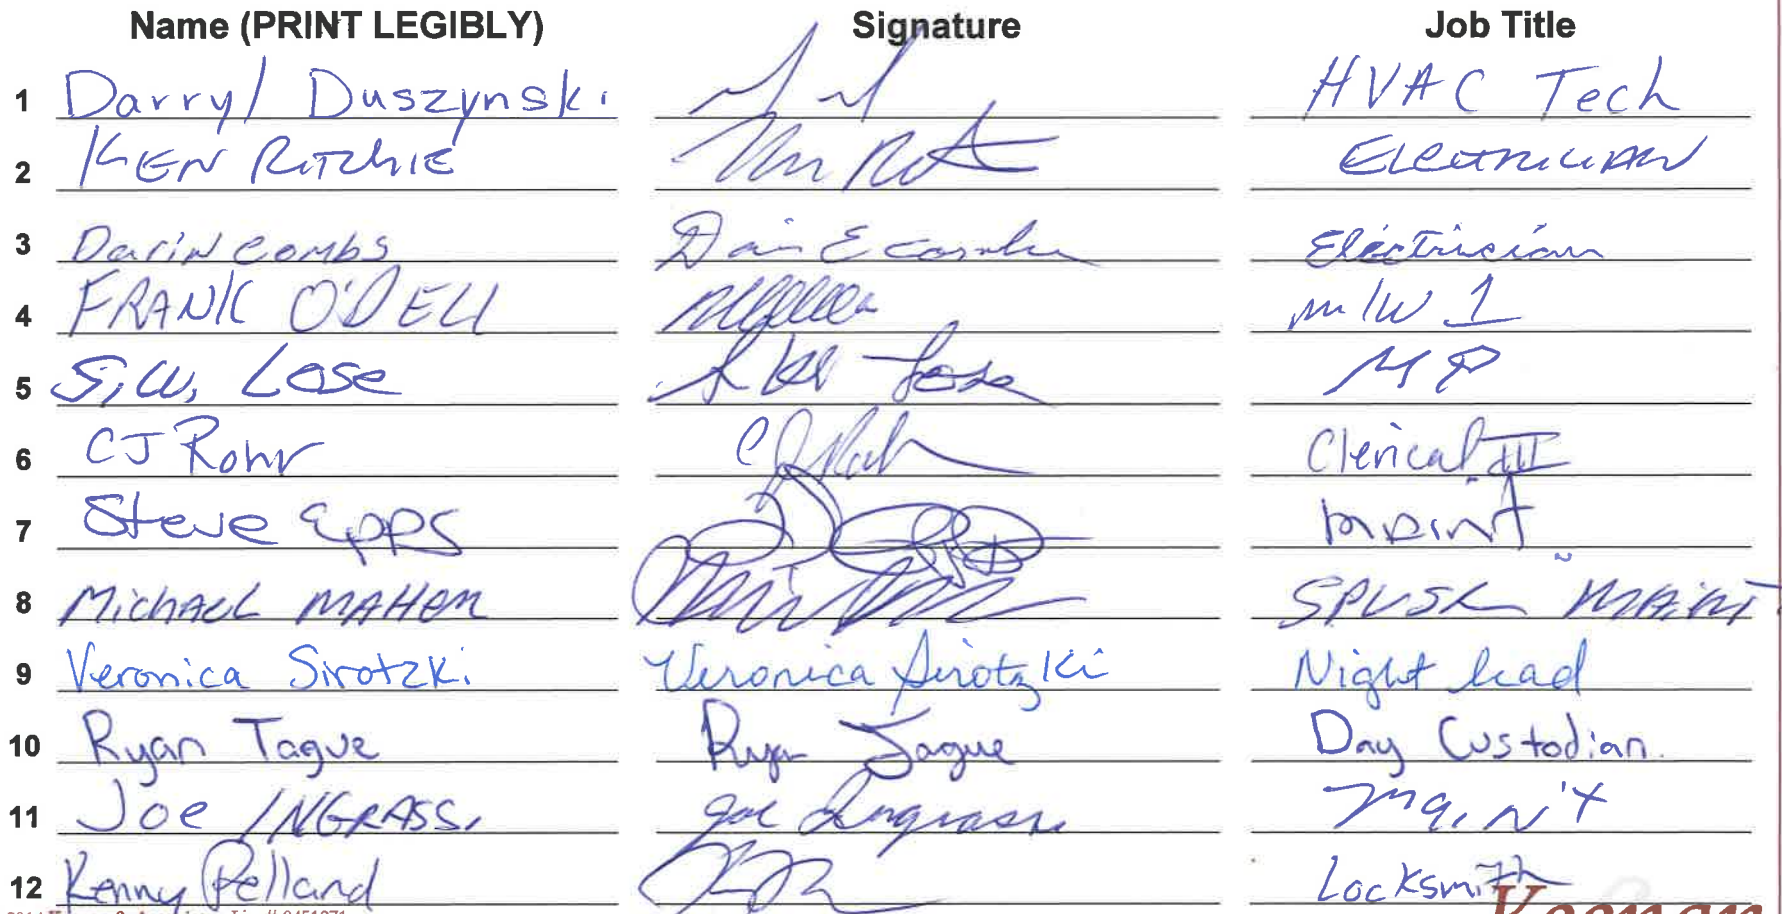 Name (PRINT LEGIBLY) Signature Job Title
1 Darryl Duszynski HVAC Tech
2 KEN RITCHIE Electrician
3 Darin Combs Darin E Combs Electrician
4 FRANK O'DELL m/w 1
5 S.W. Lose Lose MP
6 CJ Rohr CJ Rohr Clerical III
7 Steve Epps maint
8 MichAel MAHER MAINT
9 Veronica Sirotzki Veronica Sirotzki Night lead
10 Ryan Tague Ryan Tague Day Custodian.
11 Joe INGRASSI Joe Ingrassi Main't
12 Kenny Pelland Locksmith
Keenan